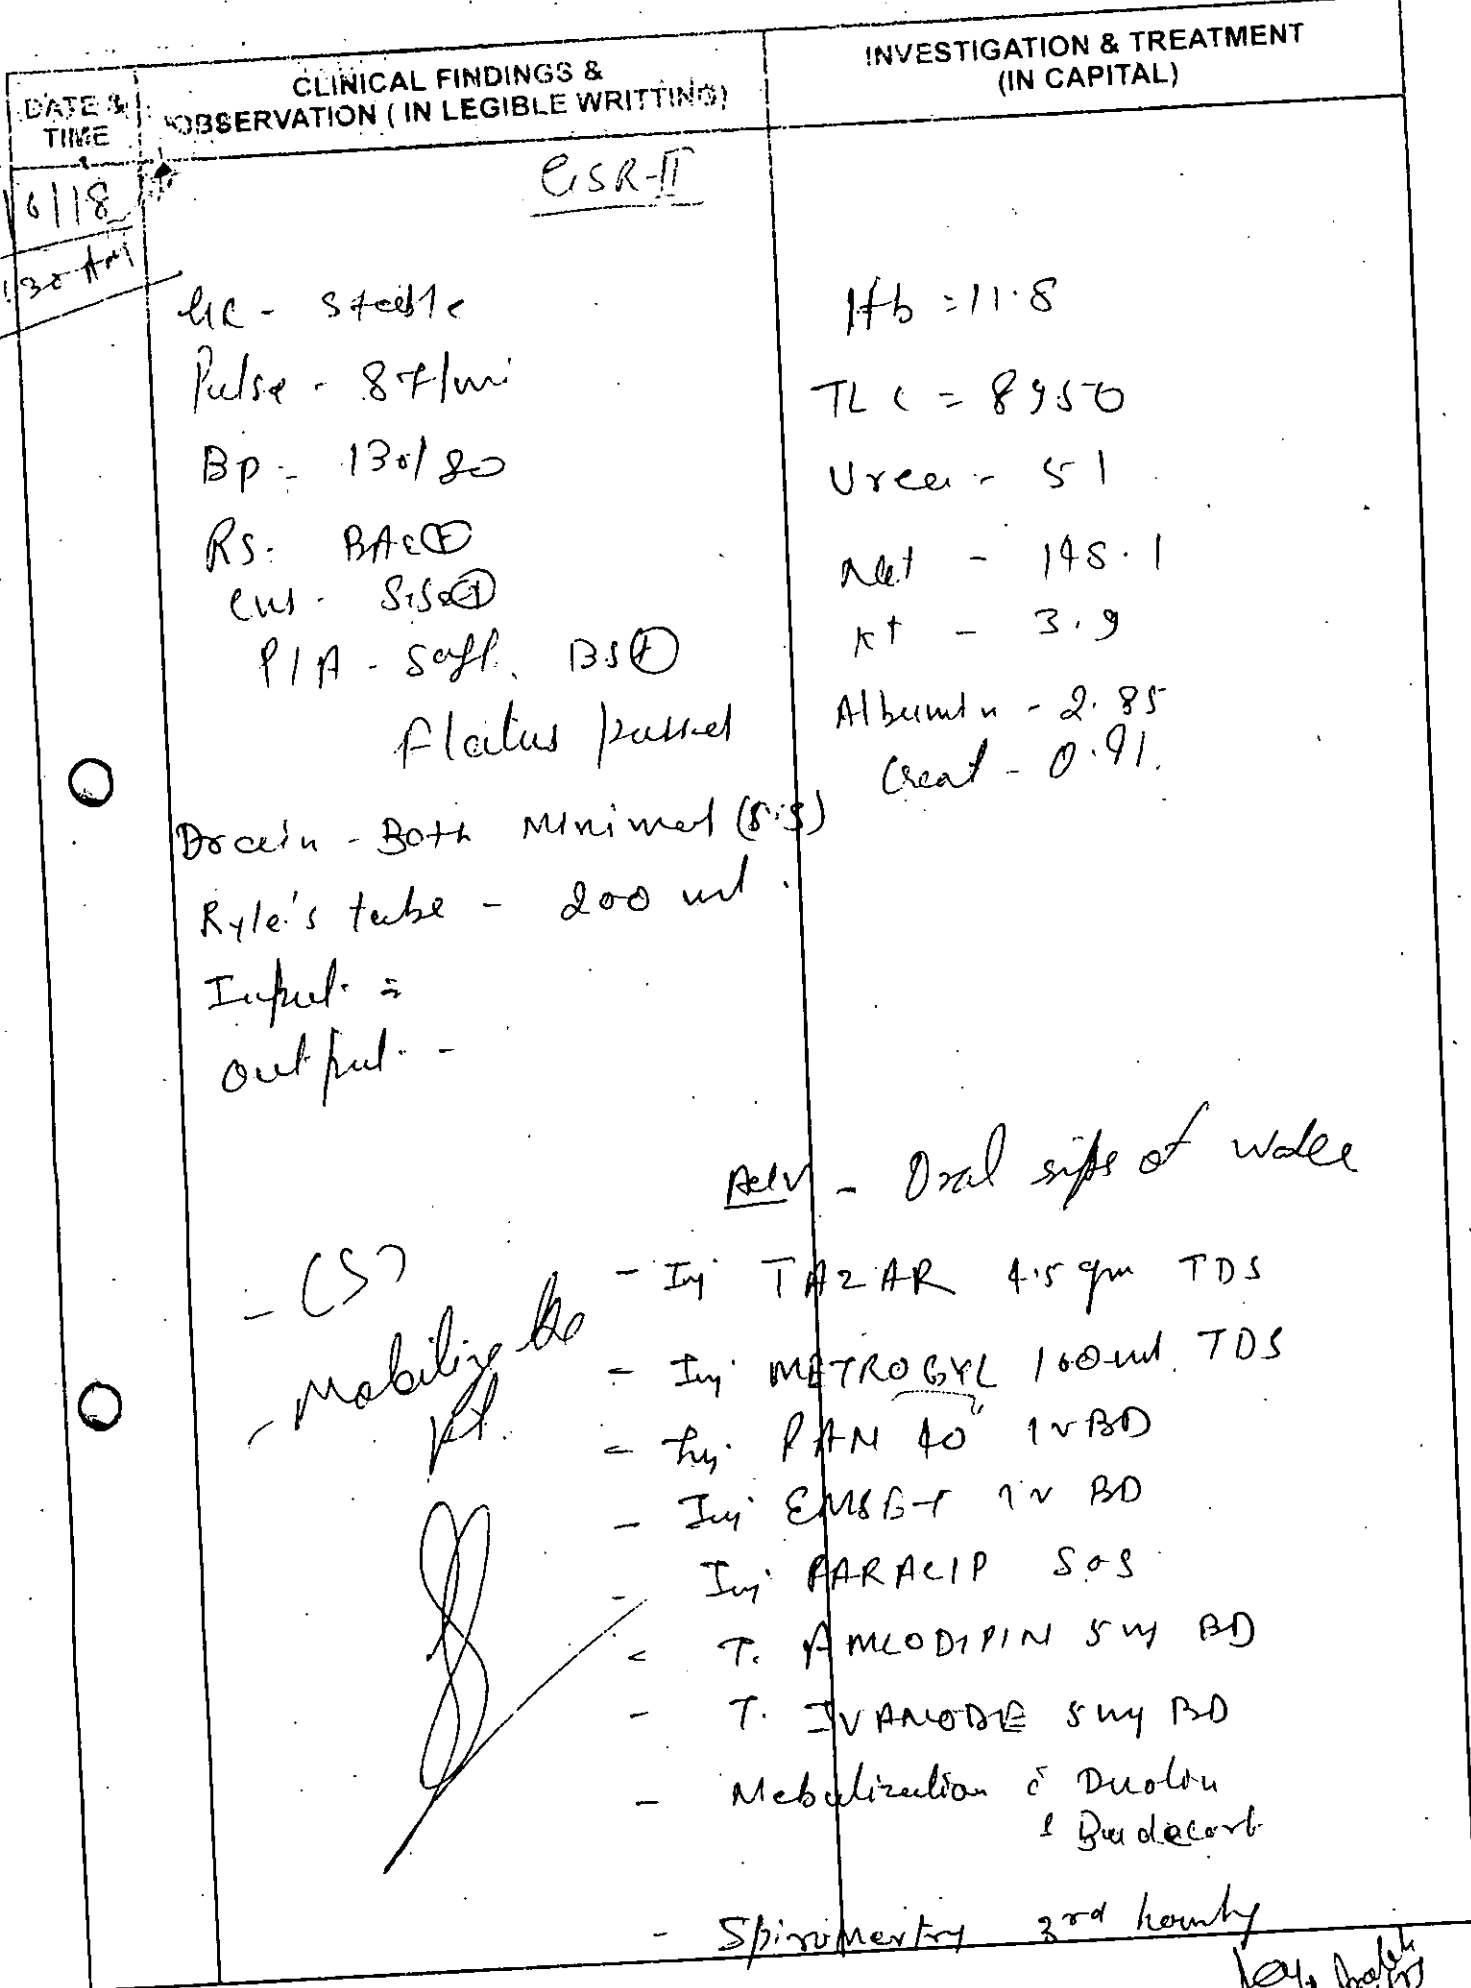 DATE &
TIME
CLINICAL FINDINGS &
OBSERVATION ( IN LEGIBLE WRITTING)
INVESTIGATION & TREATMENT
(IN CAPITAL)
6/18
30 AM
GSR-II
GC - Stable
Pulse - 87/mi
Bp - 130/80
RS: BAE⊕
CVS - S1S2⊕
P/A - Soft. BS⊕
Flatus passed
Drain - Both Minimal (S.S)
Ryle's tube - 200 ml.
Input =
output -
Hb = 11.8
TLC = 8950
Urea - 51
Na+ - 145.1
K+ - 3.9
Albumin - 2.85
Creat - 0.91.
Adv - Oral sips of water
- Inj TAZAR 4.5 gm TDS
- Inj METROGYL 100 ml. TDS
- Inj. PAN 40 IV BD
- Inj EMSET IV BD
- Inj PARACIP SOS
- T. AMLODIPIN 5 mg BD
- T. IVAMODE 5 mg BD
- Nebulization c̄ Duolin
& Budecort
- Spiromertry 3rd hourly
- CST
- Mobilize the
pt.